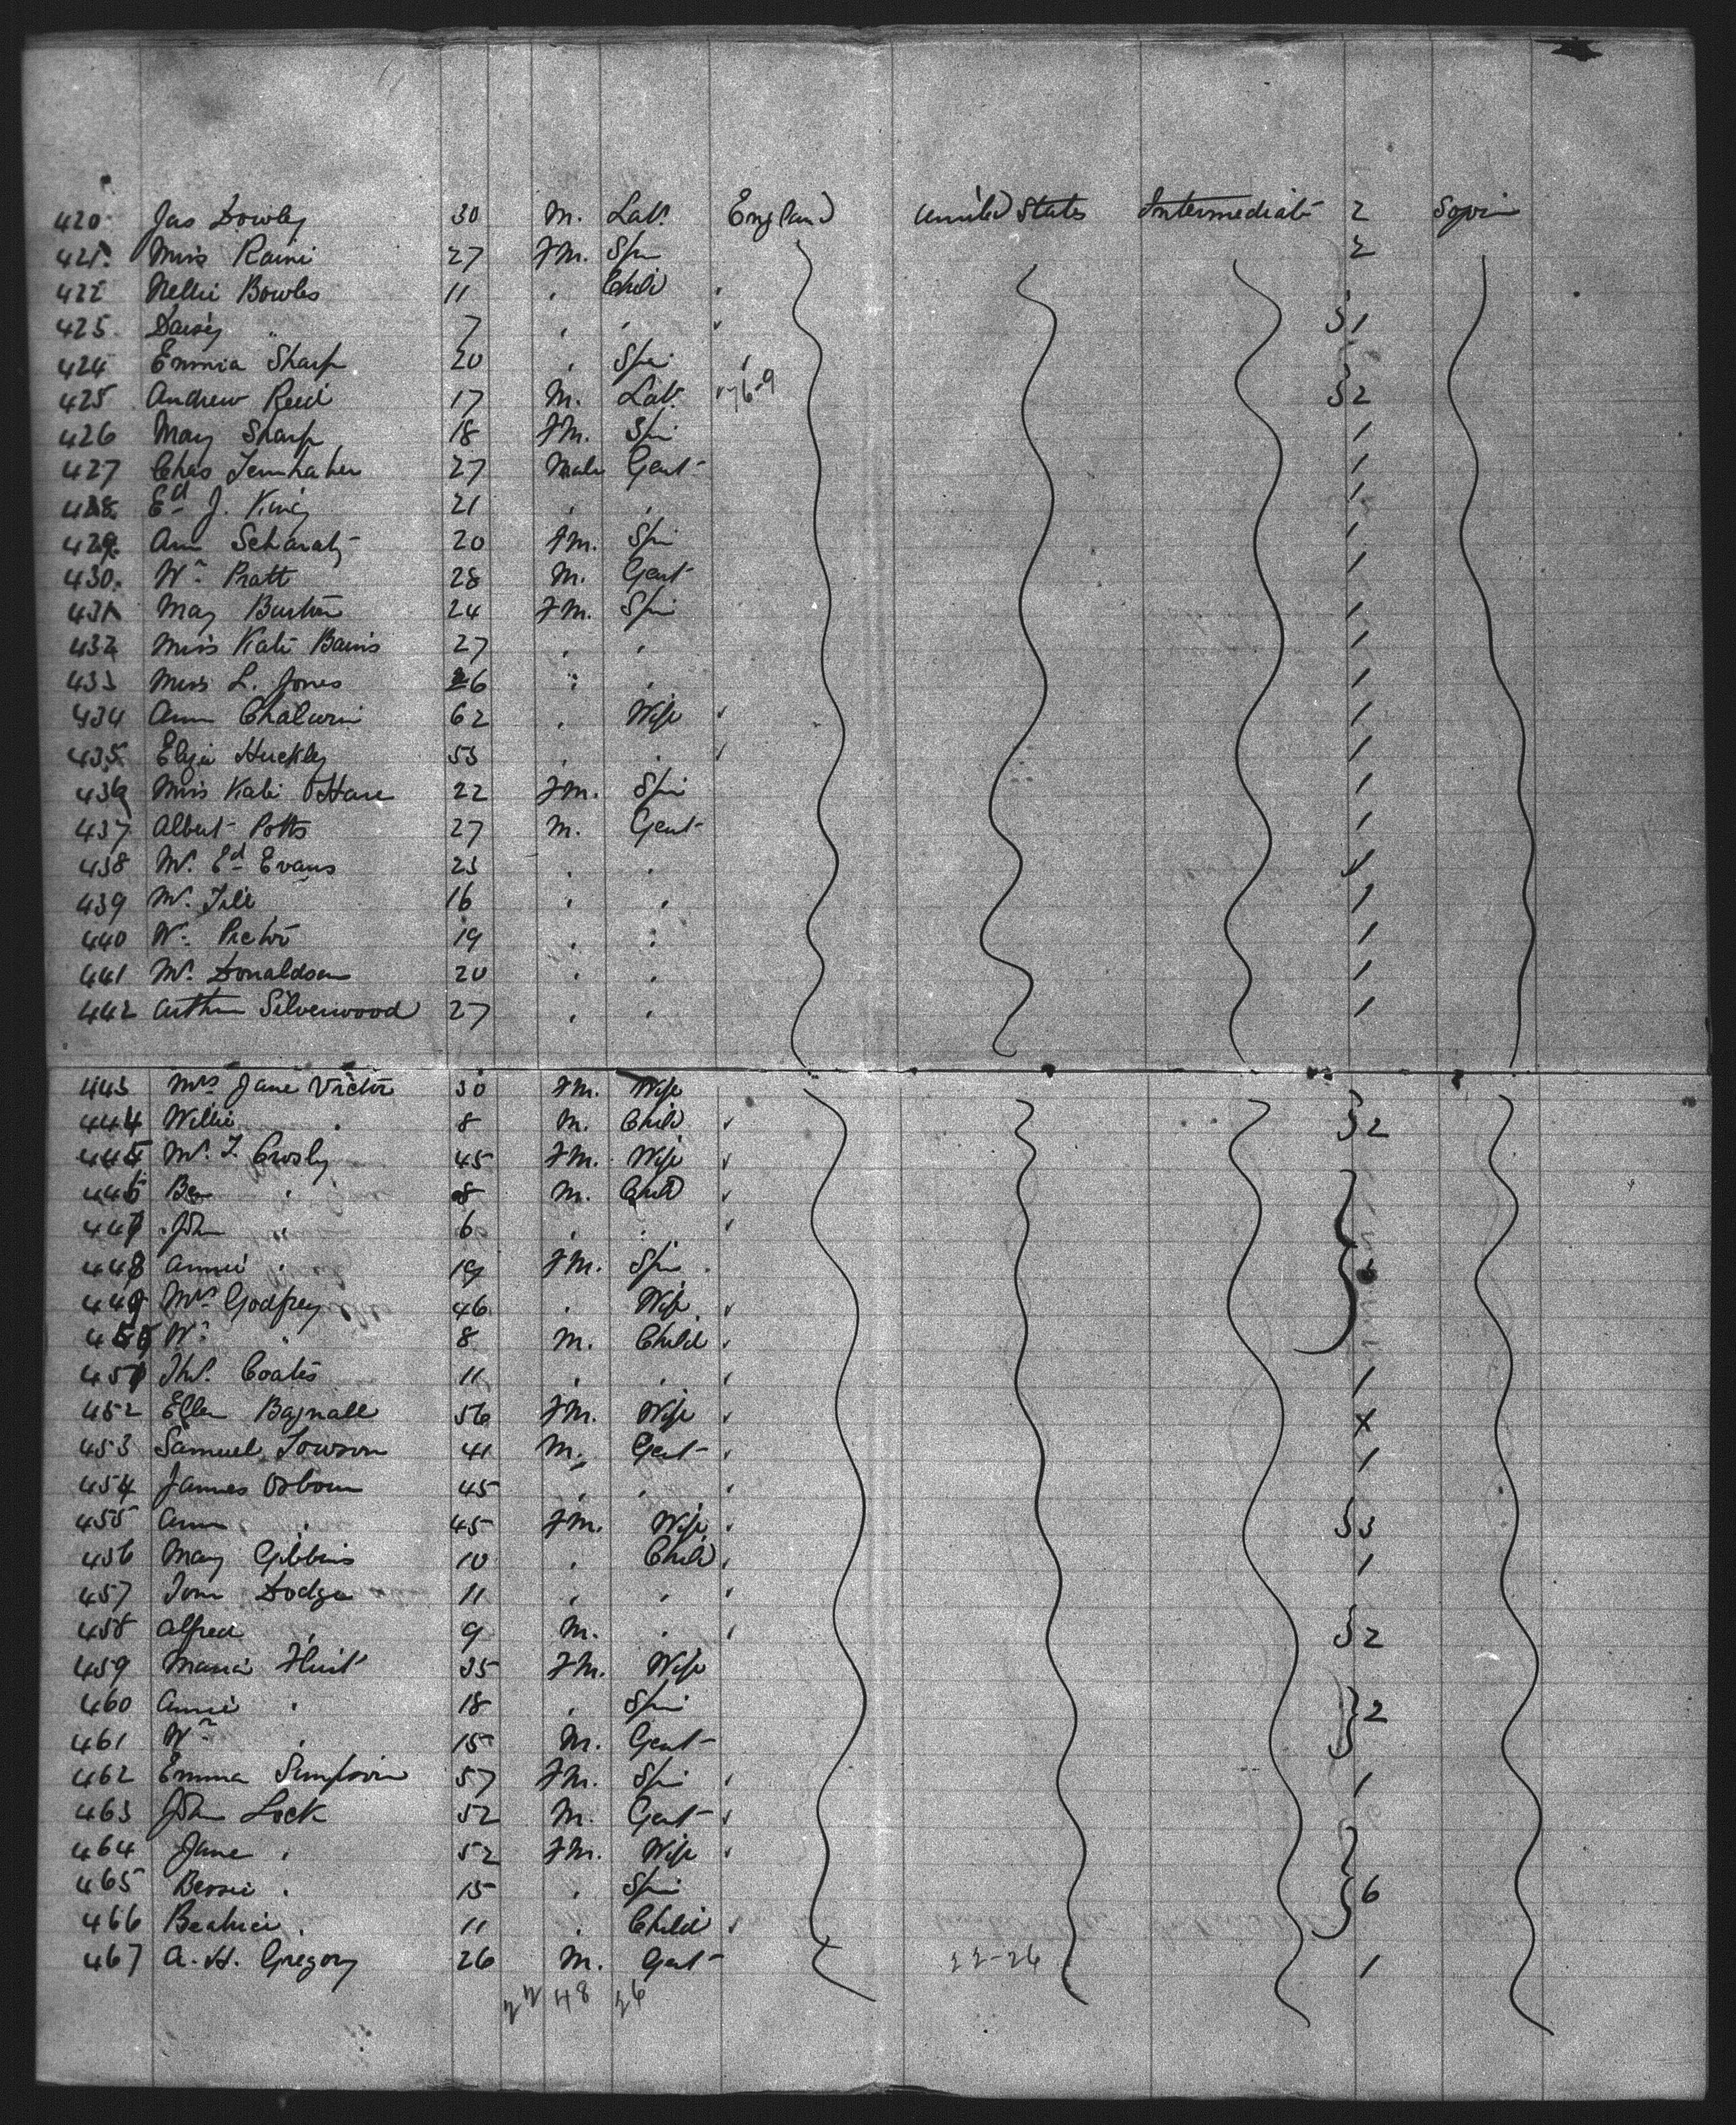 420 Jas Dowley 30 M. Lab. England United States Intermediate 2 Sojr
421 Miss Raine 27 FM. Spin 2
422 Nellie Bowles 11 " Child
423 Daisy " 7 " " } 1
424 Emma Sharp 20 " Spin
425 Andrew Reid 17 M. Lab. 76-9 } 2
426 May Sharp 18 FM. Spin 1
427 Chas 27 Male Gent 1
428 Ed J. King 21 " " 1
429 Ann 20 FM. Spin 1
430 Wm Pratt 28 M. Gent 1
431 May Burton 24 FM. Spin 1
432 Miss Kate Bains 27 " " 1
433 Miss L. Jones 26 " " 1
434 Ann 62 " Wife 1
435 Eliza Huckley 53 " " 1
436 Miss Kate O'Hare 22 FM. Spin 1
437 Albert Potts 27 M. Gent 1
438 Mr. Ed Evans 23 " " 1
439 Mr. 16 " " 1
440 Wm 19 " " 1
441 Mr. Donaldson 20 " " 1
442 Arthur Silverwood 27 " " 1
443 Mrs Jane Victor 30 FM. Wife
444 Willie " 8 M. Child } 2
445 T. Crosly 45 FM. Wife
446 Ben " 8 M. Child
447 John " 6 " "
448 Annie " 19 FM. Spin
449 Mrs Godfrey 46 " Wife
450 Wm " 8 M. Child
451 Thos. Coates 11 " " 1
452 Ellen Bagnall 56 FM. Wife X
453 Samuel Towson 41 M. Gent 1
454 James Osborn 45 " "
455 Ann " 45 FM. Wife } 3
456 May Gibbins 10 " Child 1
457 Tom Dodge 11 " "
458 Alfred " 9 M. " } 2
459 Maria 35 FM. Wife
460 Annie " 18 " Spin } 2
461 Wm " 15 M. Gent
462 Emma Simpson 57 FM. Spin 1
463 John Lock 52 M. Gent
464 Jane " 52 FM. Wife
465 Bessie " 15 " Spin } 6
466 Beatrice " 11 " Child
467 A. H. Gregory 26 M. Gent 22-26 1
22 48 26